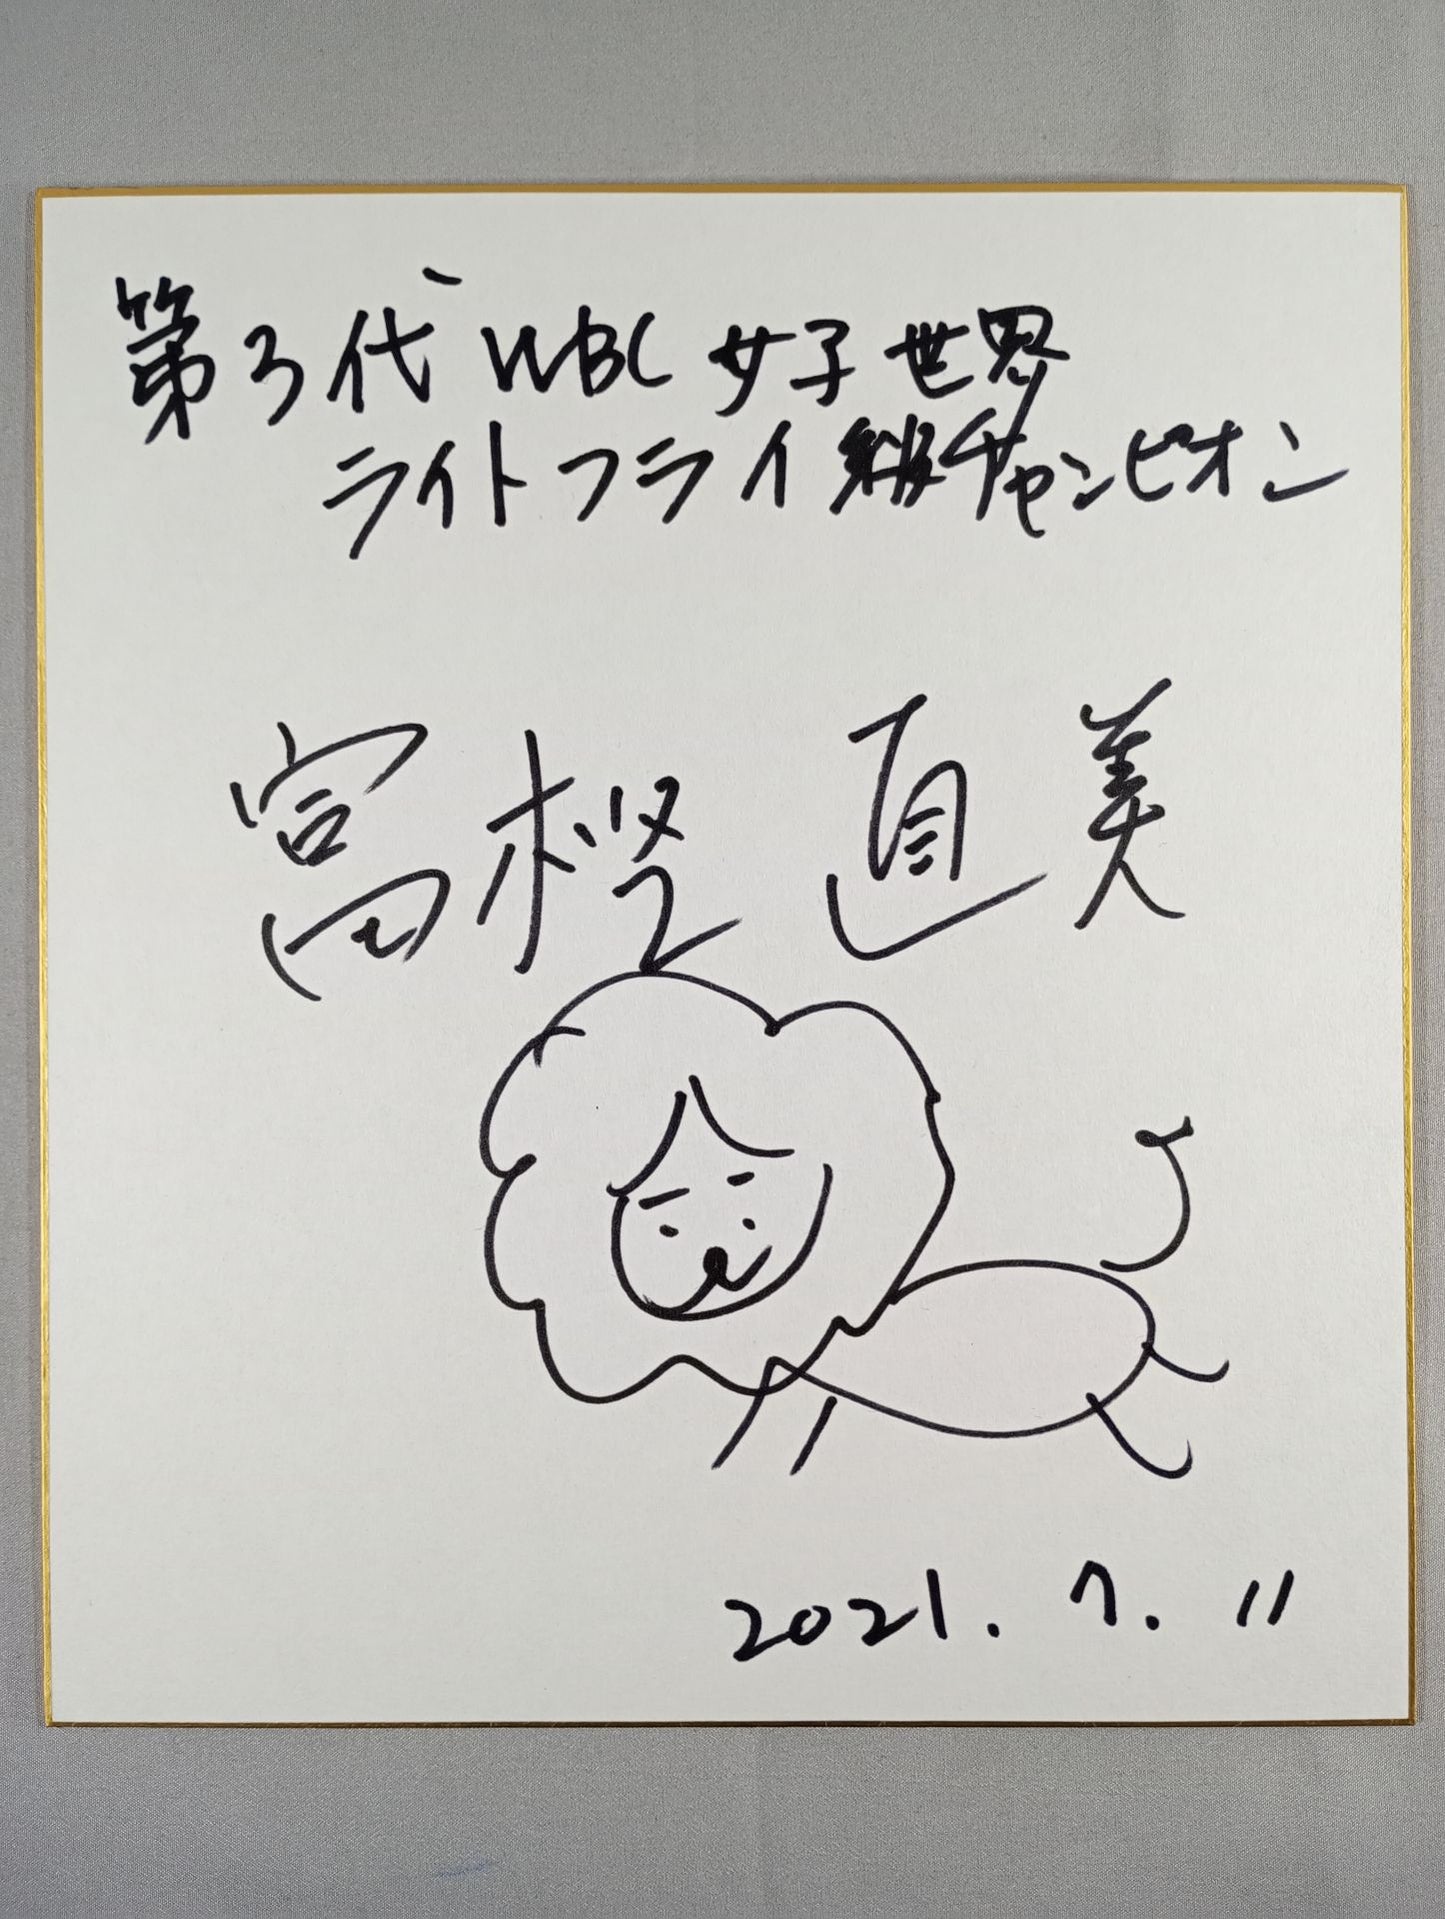 第3代 WBC 女子世界
ライトフライ級チャンピオン
富樫直美
2021.7.11